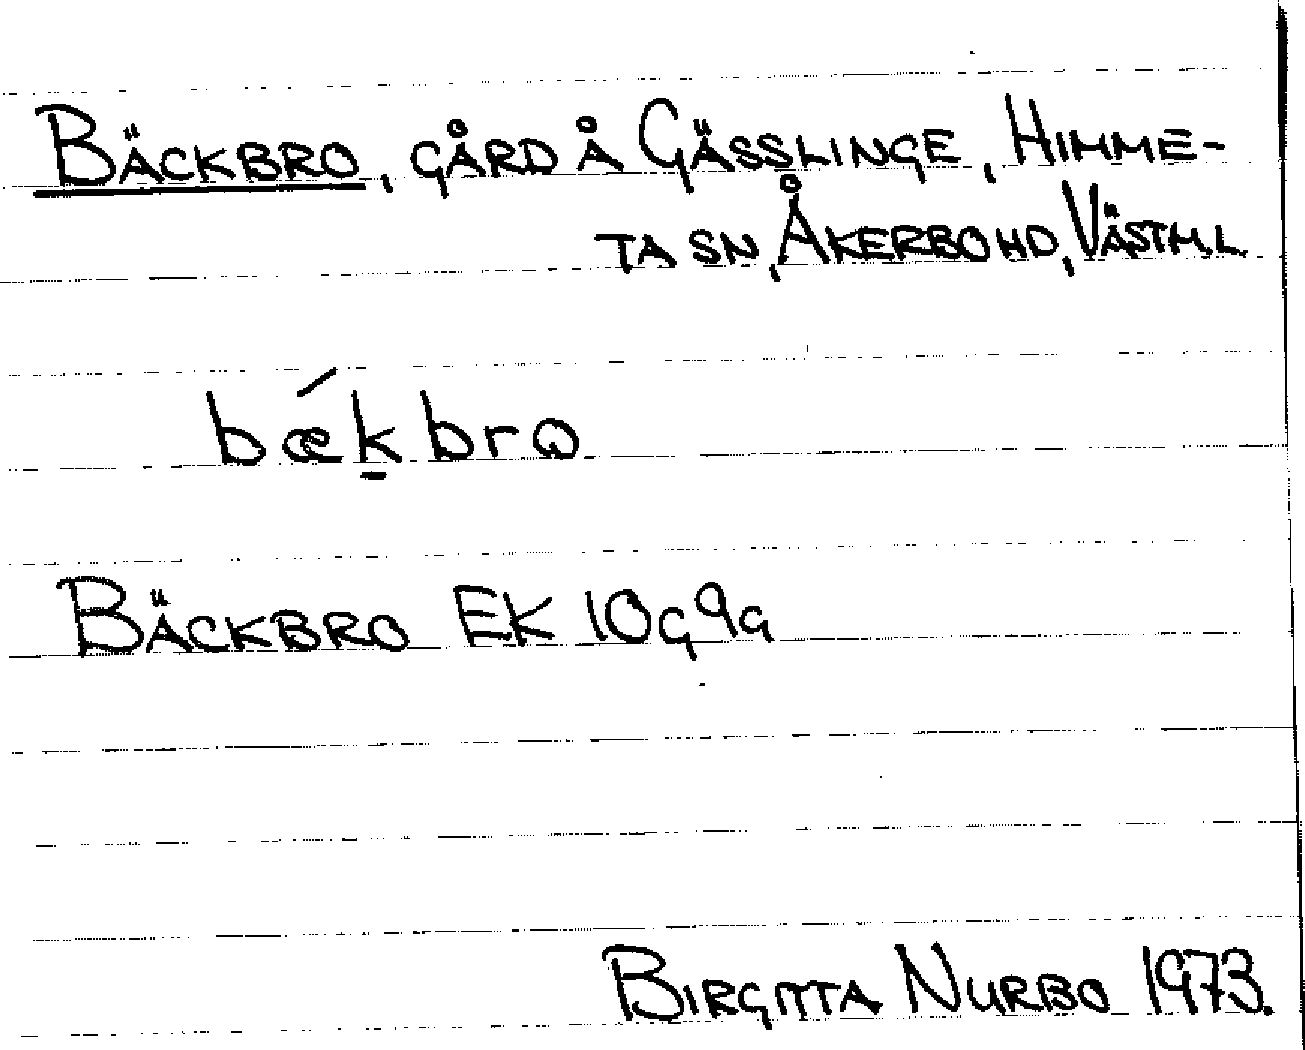 BÄCKBRO, GÅRD Å GÄSSLINGE, HIMME-
TA SN, ÅKERBO HD, VÄSTM.L.
bǽk̠bro
BÄCKBRO EK 10G9g
BIRGITTA NURBO 1973.